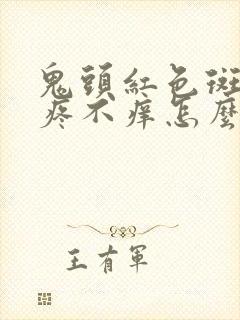 鬼頭紅色斑
疼不痒怎麼
王有軍